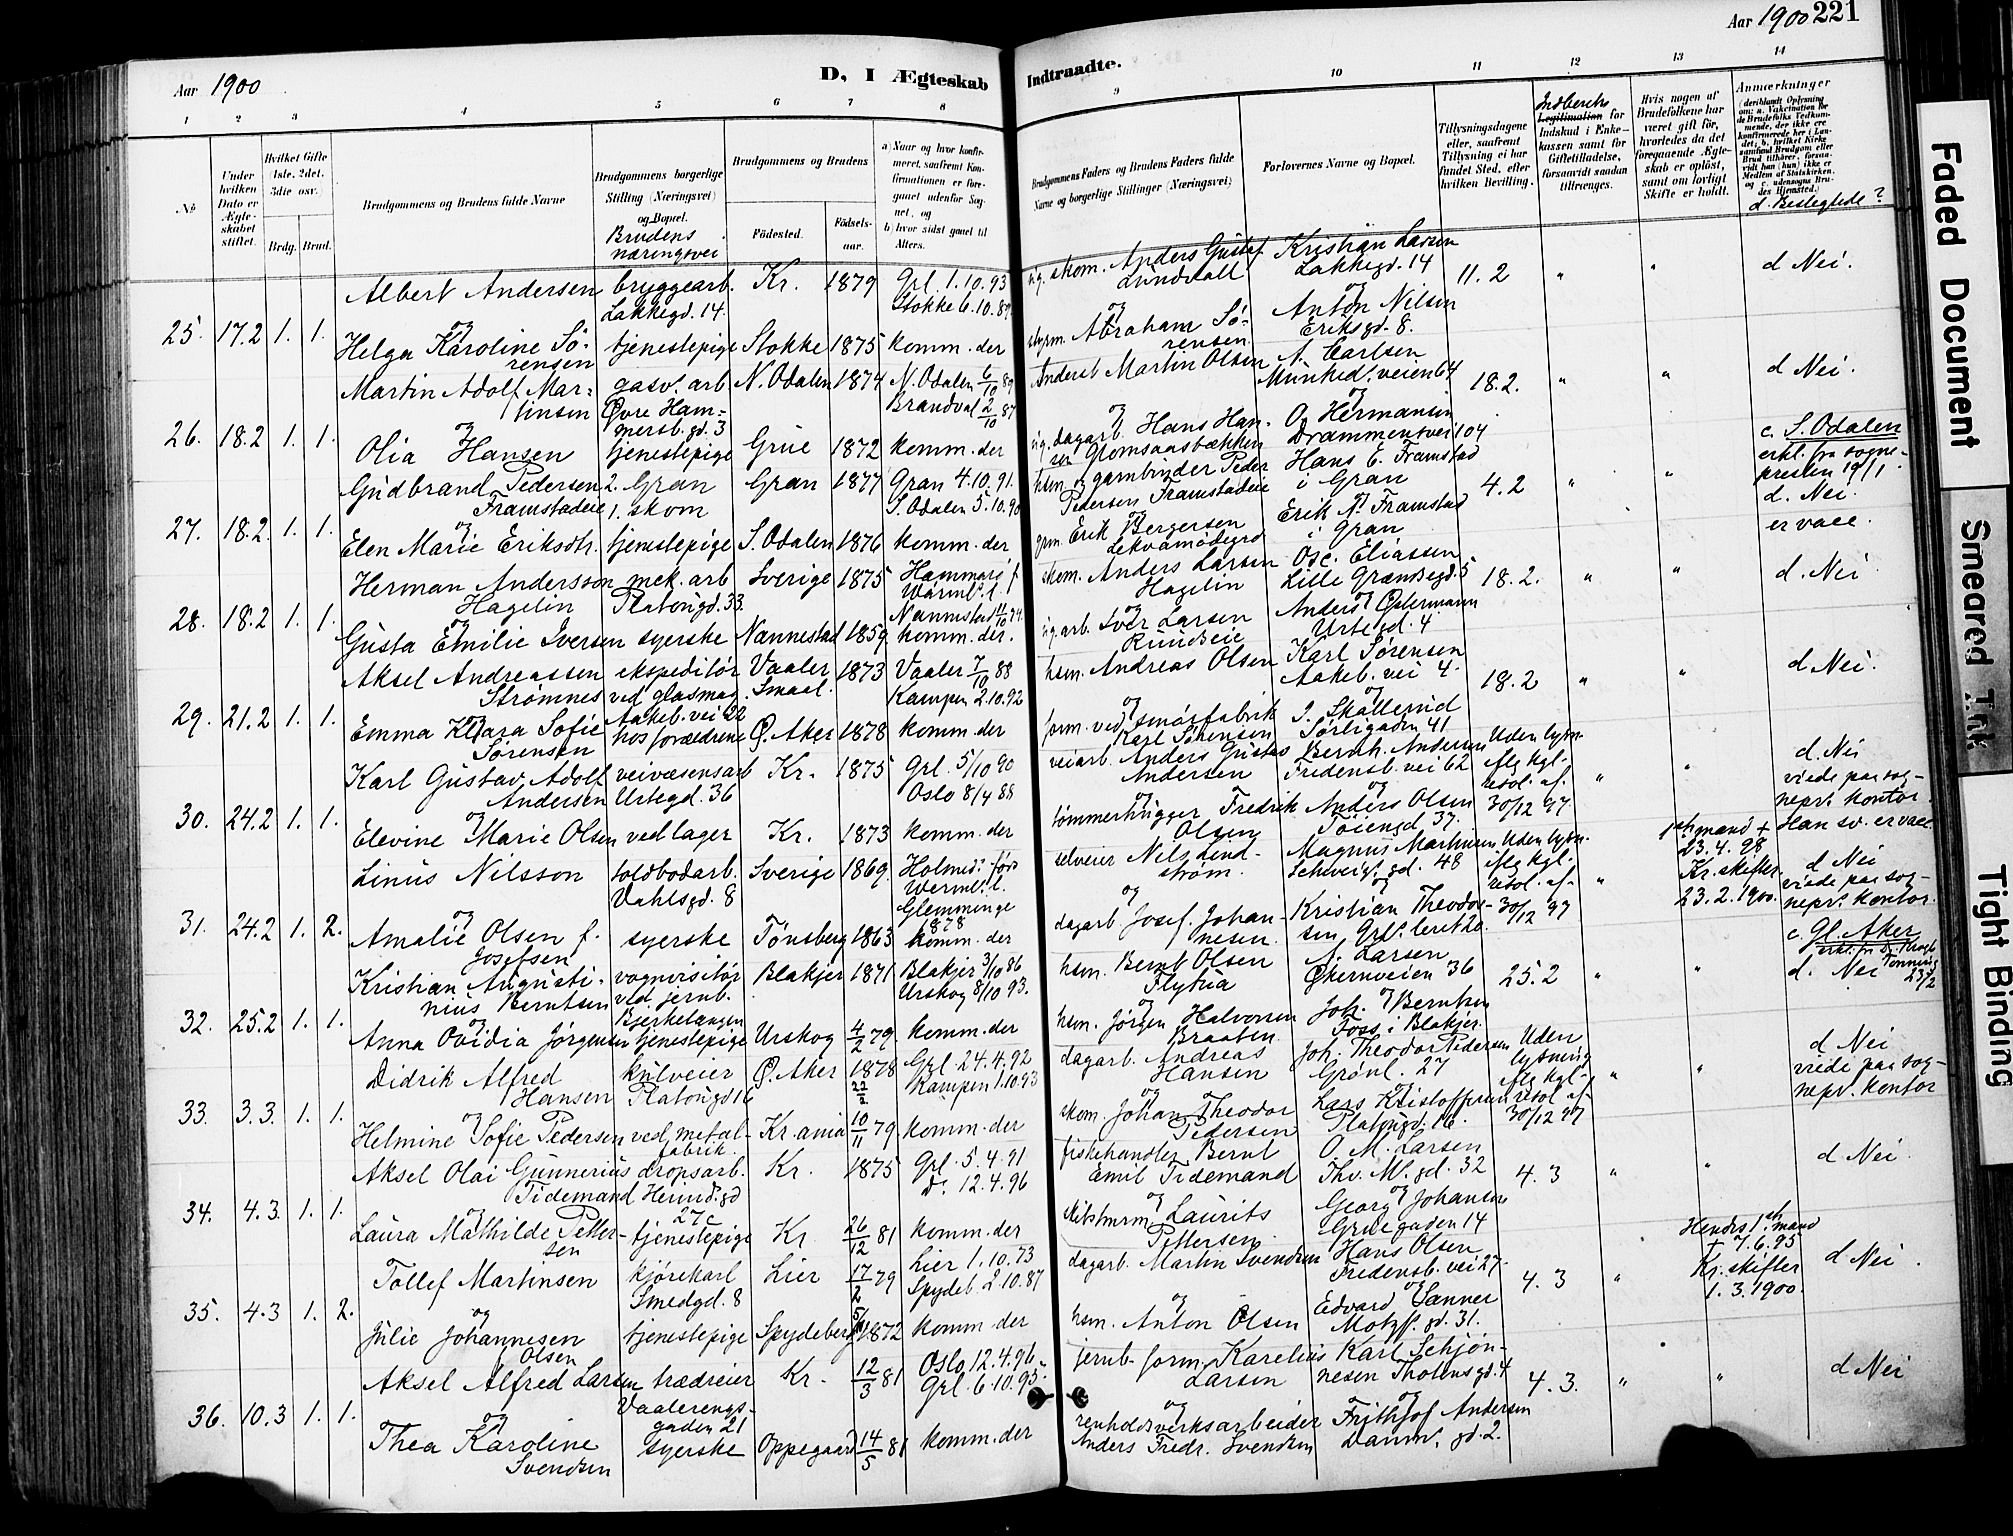 Aar 1900
D, I Ægteskab
Indtraadte.
Aar 1900 221
1 2 3 4 5 6 7 8 9 10 11 12 13 14
No
Under hvilken Dato er Ægteskabet stiftet.
Hvilket Gifte (1ste, 2det, 3die osv.
Brdg. Brud.
Brudgommens og Brudens fulde Navne
Brudgommens borgerlige Stilling (Næringsvei) og Bopæl.
Brudens næringsvei
Brudgommens og Brudens
Födested. Födsels-aar.
a) Naar og hvor konfirmeret, saafremt Konfirmationen er foregaaet udenfor Sognet, og
b) hvor sidst gaaet til Alters.
Brudgommens Faders og Brudens Faders fulde Navne og borgerlige Stillinger (Næringsvei)
Forlovernes Navne og Bopæl.
Tillysningsdagene eller, saafremt Tillysning ei har fundet Sted, efter hvilken Bevilling.
Legitimation for Indskud i Enkekassen samt for Giftetilladelse, forsaavidt saadan tiltrænges.
Hvis nogen af Brudefolkene har været gift før, hvorledes da det foregaaende Ægteskab er opløst, samt om lovligt Skifte er holdt.
Anmærkninger
d. Beslegtede?
25. 17.2 1. 1.
Albert Andersen bryggearb. Lakkegd. 14. Kr. 1879 Grl. 1.10.93 Stokke 6.10.89
skom. Anders Gustaf Lundvall Kristian Larsen Lakkegd. 14 11.2 " " d Nei.
og
Helga Karoline Sörensen tjenestepige Stokke 1875 komm. der
Abraham Sörensen Anton Nilsen Eriksgd. 8.
26. 18.2 1. 1.
Martin Adolf Martinsen gasv. arb Øvre Hammersb. gd. 3 N. Odalen 1874 N. Odalen 6/10 89 Brandval 2/10 87
Martin Olsen A. Carlsen Munked. veien 64 18.2. " " d Nei.
og
Olia Hansen tjenestepige Grue 1872 komm. der
dagarb. Hans Hansen Glomsaasbækken O. Hermansen Drammensvei 104
27. 18.2. 1. 1.
Gudbrand Pedersen Framstadeie 2. Gran 1. skom Gran 1877 Gran 4.10.91. S. Odalen 5.10.90
hsm. og garnbinder Peder Pedersen Framstadeie Hans E. Framstad i Gran 4.2 " "
c. S. Odalen erkl. fra sognepresten 19/1. d. Nei.
og
Elen Marie Eriksdtr. tjenestepige S. Odalen 1876 komm. der
Erik Bergersen Erik N. Framstad i Gran er vacc.
28. 18.2 1. 1.
Herman Andersson Hagelin mek. arb Platougd. 33. Sverige 1875
skom. Anders Larsen Hagelin Osc. Eliassen Lille Grændsegd. 5 18.2. " " d. Nei
og
Gusta Emilie Iversen syerske Nannestad 1859 komm. der.
arb. Iver Larsen Ruudseie Anders Ostermann Urtegd. 4
29. 21.2 1. 1.
Aksel Andreassen Strømnes ekspeditør ved glasmag. Aakeb. vei 22 Vaaler Smaal. 1873 Vaaler 7/10 88 Kampen 2.10.92
hsm. Andreas Olsen Karl Sørensen Aakeb. vei 4. 18.2 " " d Nei.
og
Emma Klara Sofie Sørensen hos forældrene Ø. Aker 1878 komm. der
form. ved smørfabrik Karl Sørensen I. Skallerud Sørligaden 41
30. 24.2 1. 1.
Karl Gustav Adolf Andersen veivæsensarb Urtegd. 36 Kr. 1875 Grl. 5/10 90 Oslo 8/4 88
veiarb. Anders Gustav Andersen Bernh. Andersen Fredensb. vei 62 Uden lysn. flg kgl. resol. af. 30/12 97. " "
d. Nei viede paa sognepr. kontor. Han sv. er vacc.
og
Elevine Marie Olsen ved lager Kr. 1873 komm. der
tømmerhugger Fredrik Olsen Anders Olsen Tøiengd 37.
31. 24.2 1. 2.
Linus Nilsson toldbodarb. Vahlsgd. 8 Sverige 1869. Holmed. fors Werml. l. Glemminge 1878
selveier Nils Lindstrøm. Magnus Martinsen Schweig. gd. 48 Uden lysn. flg kgl. resol. af 30/12 97 "
1ste mand + 23.4.98 Kr. skifter. 23.2.1900. d Nei viede paa sognepr. kontor.
og
Amalie Olsen f. Josefsen syerske Tønsberg 1863 komm. der
dagarb Josef Johannesen. Kristian Theodorsen
32. 25.2 1. 1.
Kristian Augustinius Berntsen vognvisitør ved jernb. Bjerkelangen Blakjer 1871 Blakjer 3/10 86 Urskog 8/10 93.
hsm. Bernt Olsen Flytua A. Larsen Økernveien 36 25.2 " "
c. Gl. Aker d. Nei
og
Anna Ovidia Jørgensen tjenestepige Urskog 4/2 79. komm. der
hsm. Jörgen Halvorsen Braaten Joh. Berntsen Foss i Blakjer.
33. 3.3. 1. 1.
Didrik Alfred Hansen kulveier Platougd 16 Ø. Aker 1878 Grl. 24.4.92 Kampen 1.10.93
dagarb. Andreas Hansen Joh. Theodor Pedersen Grønl. 27 Uden lysning flg kgl. resol af 30/12 97 " "
d Nei viede paa sognepr. kontor
og
Helmine Sofie Pedersen ved metalfabrik. Kr.ania 10/11 79 komm. der
skom. Johan Theodor Pedersen Lars Kristoffersen Platougd. 16.
34. 4.3. 1. 1.
Aksel Olai Gunnerius Tidemand dropsarb. Herm̄d.gd 27c Kr. 1875 Grl. 5.4.91 D. 12.4.96
fiskehandler Bernt Emil Tidemand O. M. Larsen Thv. M. gd. 32 4.3 " " d Nei
og
Laura Mathilde Pettersen tjenestepige Kr. 26/12 81 komm. der
Laurits Pettersen. Georg Johansen Gruegaden 14
35. 4.3 1. 2.
Tollef Martinsen kjørekarl Smedgd. 8 Lier 17/2 79 Lier 1.10.73 Spydeb. 2.10.87
dagarb. Martin Svendsen Hans Olsen Fredensb. vei 27. 4.3 "
Hendes 1ste mand + 7.6.95 Kr. skifter 1.3.1900. d Nei.
og
Julie Johannesen f Olsen tjenestepige Spydeberg 1872 komm. der
hsm. Anton Olsen Edvard Sanner Motzf. gd. 31.
36. 10.3 1. 1.
Aksel Alfred Larsen trædreier Vaalerengsgaden 21 Kr. 12/3 81 Oslo, 12.4.96 Grl. 6.10.95
jernb. form. Karelius Larsen Karl Schjønnesen Tholensgd. 4 4.3. " " d Nei
og
Thea Karoline Svendsen syerske Oppegaard 14/5 81 komm. der
renholdsverksarbeider Anders Fredr. Svendsen Frithjof Andersen Danm. gd. 2.
Faded Document
Smeared Ink
Tight Binding